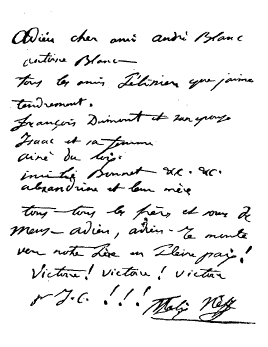 Adieu cher ami andré Blanc
antoine Blanc
tous les amis Pélissier que j'aime
tendrement.
François Dumont et
Isaac et sa femme
aimé du
Bonnet &c. &c.
alexandrine et leur mère
tous tous les frères et sœurs de
Mens adieu, adieu Je monte
vers notre Père en pleine paix!
Victoire! victoire! victoire
p J.C. !!!
Felix Neff